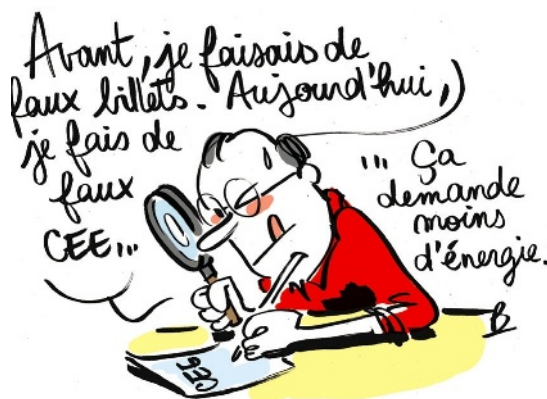 Avant, je faisais de
faux billets. Aujourd'hui,
je fais de
faux
CEE...
... Ça
demande
moins
d'énergie.
CEE
B